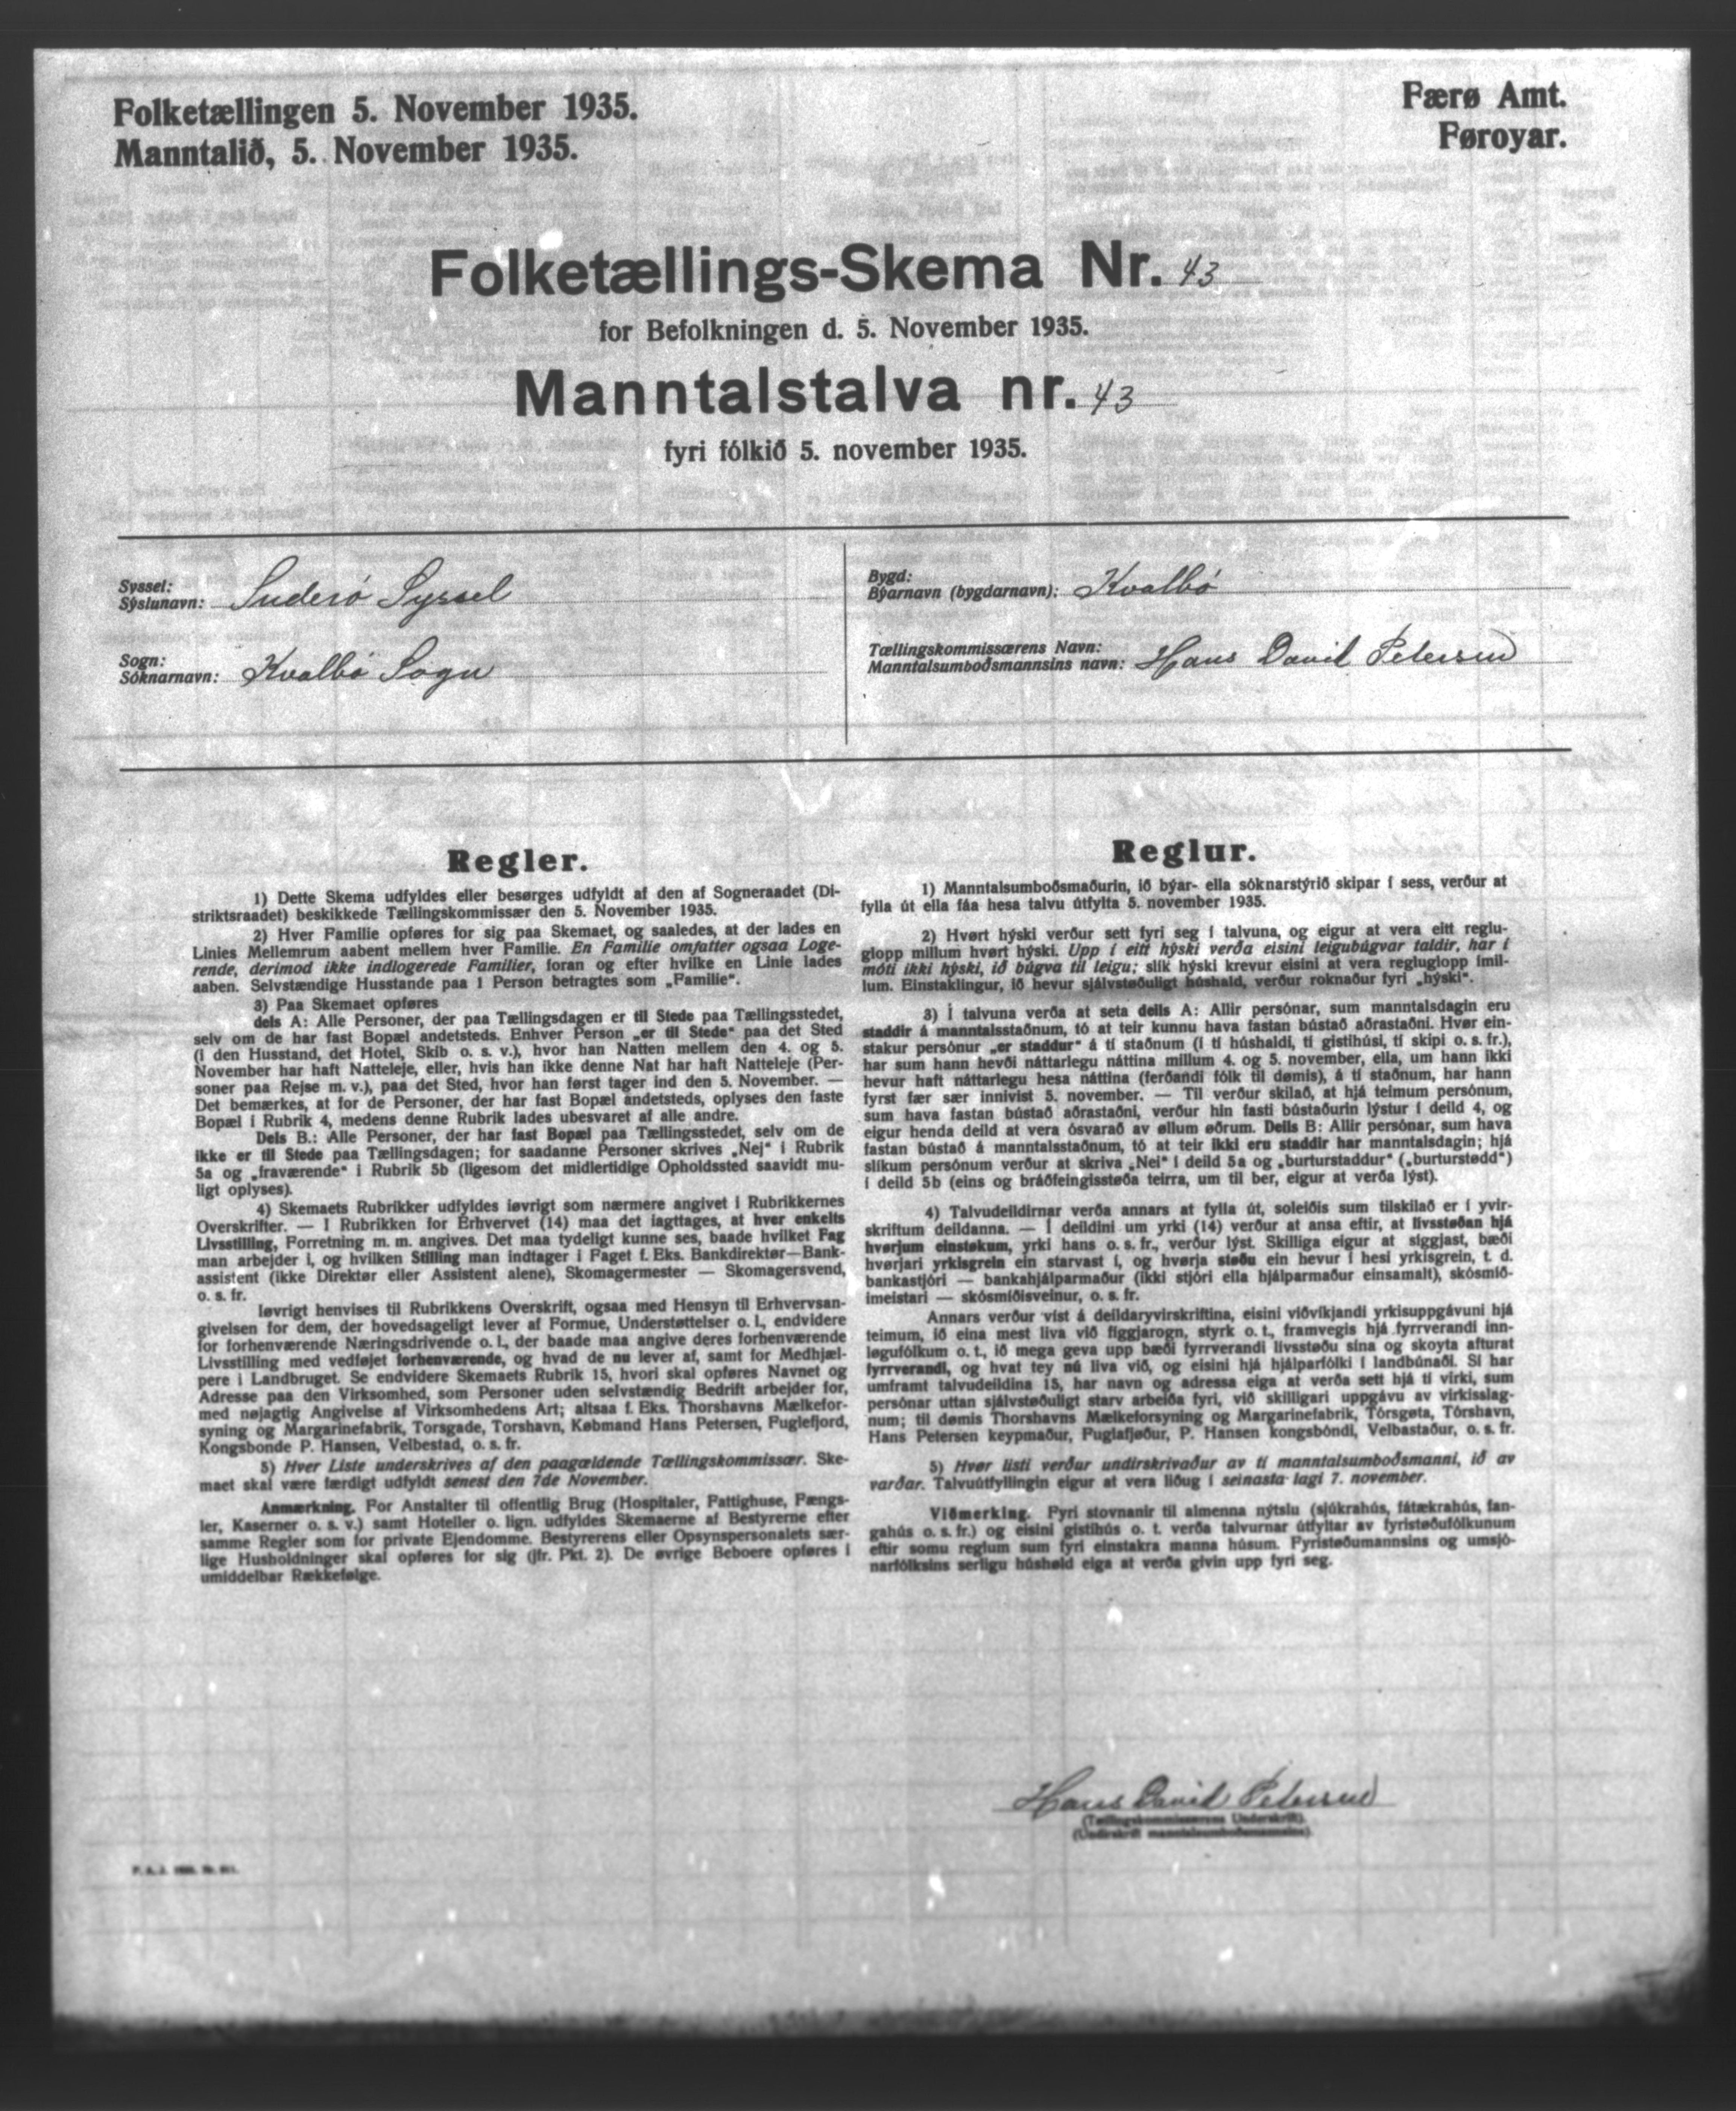 Folketællingen 5. November 1935.
Manntalið, 5. November 1935.
Færø Amt.
Føroyar.
Folketællings-Skema Nr. 43
for Befolkningen d. 5. November 1935.
Manntalstalva nr. 43
fyri fólkið 5. november 1935.
Syssel:
Sýslunavn: Suderø Syssel
Sogn:
Sóknarnavn: Kvalbø Sogn
Bygd:
Býarnavn (bygdarnavn): Kvalbø
Tællingskommissærens Navn:
Manntalsumboðsmannsins navn: Hans David Petersen
Regler.
1) Dette Skema udfyldes eller besørges udfyldt af den af Sogneraadet (Di-
striktsraadet) beskikkede Tællingskommissær den 5. November 1935.
2) Hver Familie opføres for sig paa Skemaet, og saaledes, at der lades en
Linies Mellemrum aabent mellem hver Familie. En Familie omfatter ogsaa Loge-
rende, derimod ikke indlogerede Familier, foran og efter hvilke en Linie lades
aaben. Selvstændige Husstande paa 1 Person betragtes som „Familie“.
3) Paa Skemaet opføres
dels A: Alle Personer, der paa Tællingsdagen er til Stede paa Tællingsstedet,
selv om de har fast Bopæl andetsteds. Enhver Person „er til Stede“ paa det Sted
(i den Husstand, det Hotel, Skib o. s. v.), hvor han Natten mellem den 4. og 5.
November har haft Natteleje, eller, hvis han ikke denne Nat har haft Natteleje (Per-
soner paa Rejse m. v.), paa det Sted, hvor han først tager ind den 5. November. —
Det bemærkes, at for de Personer, der har fast Bopæl andetsteds, oplyses den faste
Bopæl i Rubrik 4, medens denne Rubrik lades ubesvaret af alle andre.
Dels B.: Alle Personer, der har fast Bopæl paa Tællingsstedet, selv om de
ikke er til Stede paa Tællingsdagen; for saadanne Personer skrives „Nej“ i Rubrik
5a og „fraværende“ i Rubrik 5b (ligesom det midlertidige Opholdssted saavidt mu-
ligt oplyses).
4) Skemaets Rubrikker udfyldes iøvrigt som nærmere angivet i Rubrikkernes
Overskrifter. — I Rubrikken for Erhvervet (14) maa det iagttages, at hver enkelts
Livsstilling, Forretning m. m. angives. Det maa tydeligt kunne ses, baade hvilket Fag
man arbejder i, og hvilken Stilling man indtager i Faget f. Eks. Bankdirektør—Bank-
assistent (ikke Direktør eller Assistent alene), Skomagermester — Skomagersvend,
o. s. fr.
Iøvrigt henvises til Rubrikkens Overskrift, ogsaa med Hensyn til Erhvervsan-
givelsen for dem, der hovedsageligt lever af Formue, Understøttelser o. l., endvidere
for forhenværende Næringsdrivende o. l., der baade maa angive deres forhenværende
Livsstilling med vedføjet forhenværende, og hvad de nu lever af, samt for Medhjæl-
pere i Landbruget. Se endvidere Skemaets Rubrik 15, hvori skal opføres Navnet og
Adresse paa den Virksomhed, som Personer uden selvstændig Bedrift arbejder for,
med nøjagtig Angivelse af Virksomhedens Art; altsaa f. Eks. Thorshavns Mælkefor-
syning og Margarinefabrik, Torsgade, Torshavn, Købmand Hans Petersen, Fuglefjord,
Kongsbonde P. Hansen, Velbestad, o. s. fr.
5) Hver Liste underskrives af den paagældende Tællingskommissær. Ske-
maet skal være færdigt udfyldt senest den 7de November.
Anmærkning. For Anstalter til offentlig Brug (Hospitaler, Fattighuse, Fængs-
ler, Kaserner o. s. v.) samt Hoteller o. lign. udfyldes Skemaerne af Bestyrerne efter
samme Regler som for private Ejendomme. Bestyrerens eller Opsynspersonalets sær-
lige Husholdninger skal opføres for sig (jfr. Pkt. 2). De øvrige Beboere opføres i
umiddelbar Rækkefølge.
Reglur.
1) Manntalsumboðsmaðurin, ið býar- ella sóknarstýrið skipar í sess, verður at
fylla út ella fáa hesa talvu útfylta 5. november 1935.
2) Hvørt hýski verður sett fyri seg í talvuna, og eigur at vera eitt reglu-
glopp millum hvørt hýski. Upp í eitt hýski verða eisini leigubúgvar taldir, har í
móti ikki hýski, ið búgva til leigu; slík hýski krevur eisini at vera regluglopp ímil-
lum. Einstaklingur, ið hevur sjálvstøðuligt húshald, verður roknaður fyri „hýski“.
3) Í talvuna verða at seta dells A: Allir persónar, sum manntalsdagin eru
staddir á manntalsstaðnum, tó at teir kunnu hava fastan bústað aðrastaðni. Hvør ein-
stakur persónur „er staddur“ á tí staðnum (í tí húshaldi, tí gistihúsi, tí skipi o. s. fr.),
har sum hann hevði náttarlegu náttina millum 4. og 5. november, ella, um hann ikki
hevur haft náttarlegu hesa náttina (ferðandi fólk til dømis), á tí staðnum, har hann
fyrst fær sær innivist 5. november. — Til verður skilað, at hjá teimum persónum,
sum hava fastan bústað aðrastaðni, verður hin fasti bústaðurin lýstur í deild 4, og
eigur henda deild at vera ósvarað av øllum øðrum. Dells B: Allir persónar, sum hava
fastan bústað á manntalsstaðnum, tó at teir ikki eru staddir har manntalsdagin; hjá
slíkum persónum verður at skriva „Nei“ í deild 5a og „burturstaddur“ („burturstødd“)
í deild 5b (eins og bráðfeingisstøða teirra, um til ber, eigur at verða lýst).
4) Talvudeildirnar verða annars at fylla út, soleiðis sum tilskilað er í yvir-
skriftum deildanna. — Í deildini um yrki (14) verður at ansa eftir, at livsstøðan hjá
hvørjum einstøkum, yrki hans o. s. fr., verður lýst. Skilliga eigur at siggjast, bæði
hvørjari yrkisgrein ein starvast í, og hvørja støðu ein hevur í hesi yrkisgrein, t. d.
bankastjóri — bankahjálparmaður (ikki stjóri ella hjálparmaður einsamalt), skósmið-
imeistari — skósmiðisveinur, o. s. fr.
Annars verður víst á deildaryvirskriftina, eisini viðvíkjandi yrkisuppgávuni hjá
teimum, ið eina mest liva við figgjarogn, styrk o. t., framvegis hjá fyrrverandi inn-
løgufólkum o. t., ið mega geva upp bæði fyrrverandi livsstøðu sína og skoyta afturat
fyrrverandi, og hvat tey nú liva við, og eisini hjá hjálparfólki í landbúnaði. Sí har
umframt talvudeildina 15, har navn og adressa eiga at verða sett hjá tí virki, sum
persónar uttan sjálvstøðuligt starv arbeiða fyri, við skilligari uppgávu av virkisslag-
num; til dømis Thorshavns Mælkeforsyning og Margarinefabrik, Tórsgøta, Tórshavn,
Hans Petersen keypmaður, Fuglafjøður, P. Hansen kongsbóndi, Velbastaður, o. s. fr.
5) Hvør listi verður undirskrivaður av tí manntalsumboðsmanni, ið av
varðar. Talvuútfyllingin eigur at vera liðug í seinasta lagi 7. november.
Viðmerking. Fyri stovnanir til almenna nýtslu (sjúkrahús, fátækrahús, fan-
gahús o. s. fr.) og eisini gistihús o. t. verða talvurnar útfyltar av fyristøðufólkunum
eftir somu reglum sum fyri einstakra manna húsum. Fyristøðumannsins og umsjó-
narfólksins serligu húshøld eiga at verða givin upp fyri seg.
Hans David Petersen
(Tællingskommissærens Underskrift).
(Undirskrift manntalsumboðsmannsins)